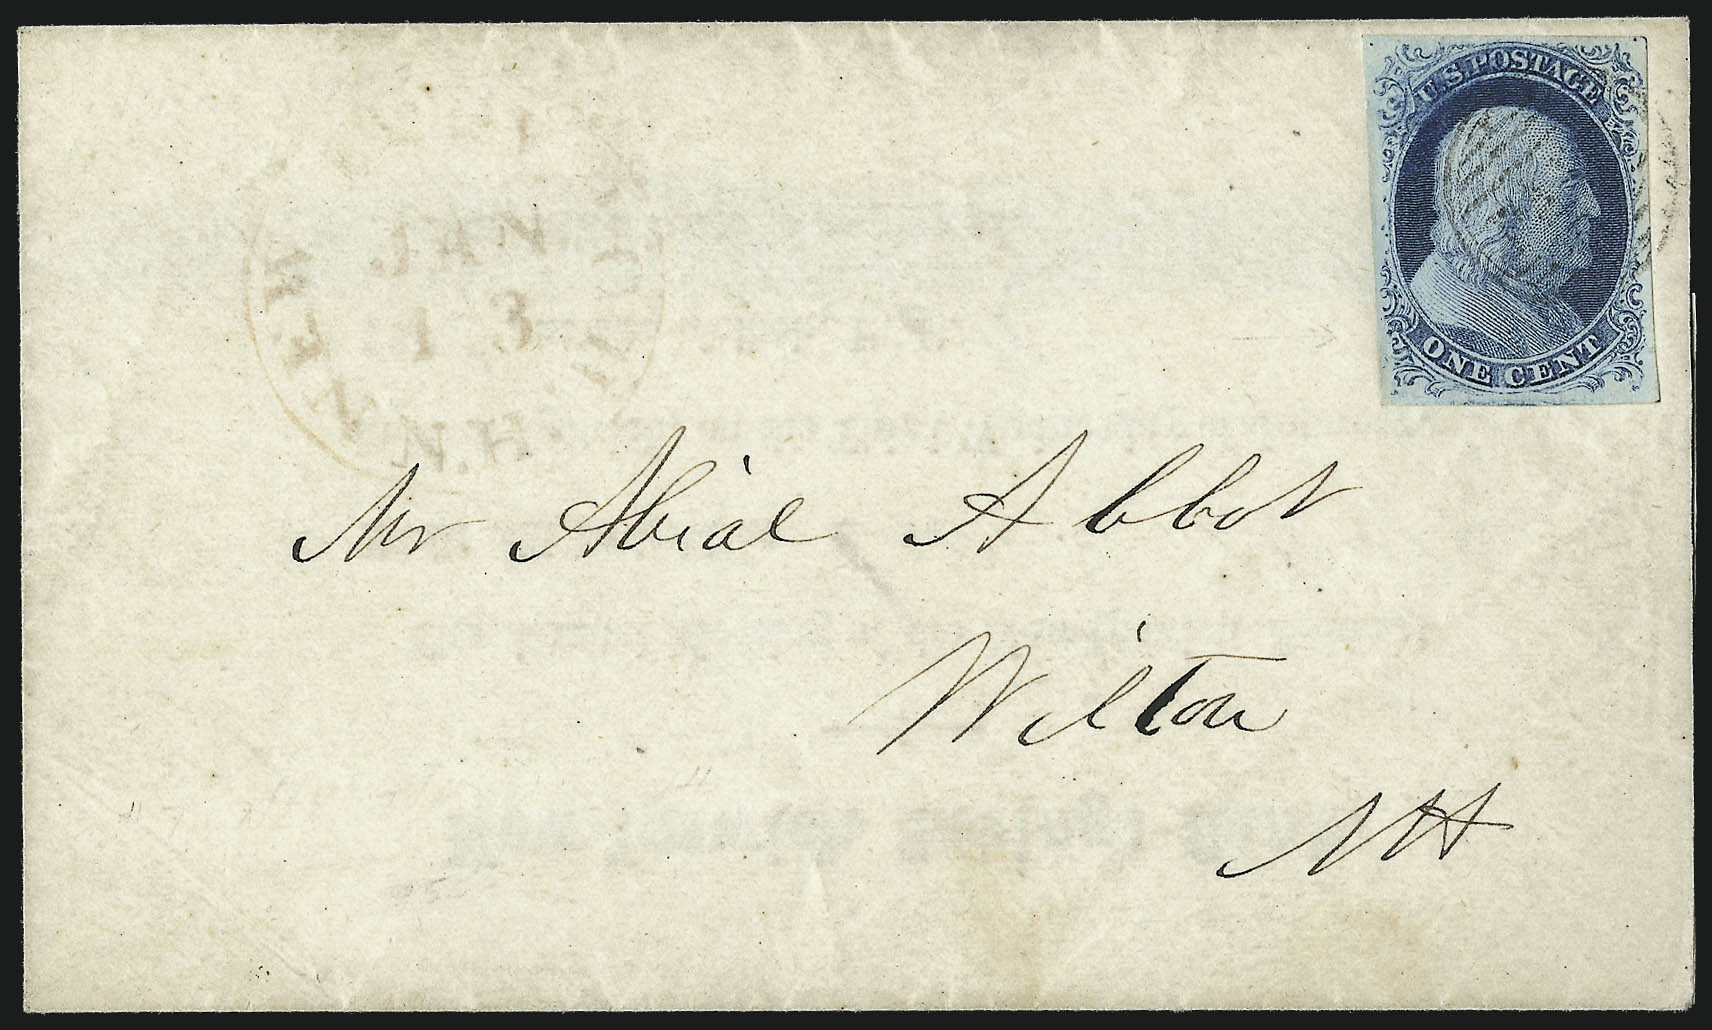 U.S. POSTAGE
ONE CENT
13
N.H.
Mr Abial Abbot
Wilton
NH